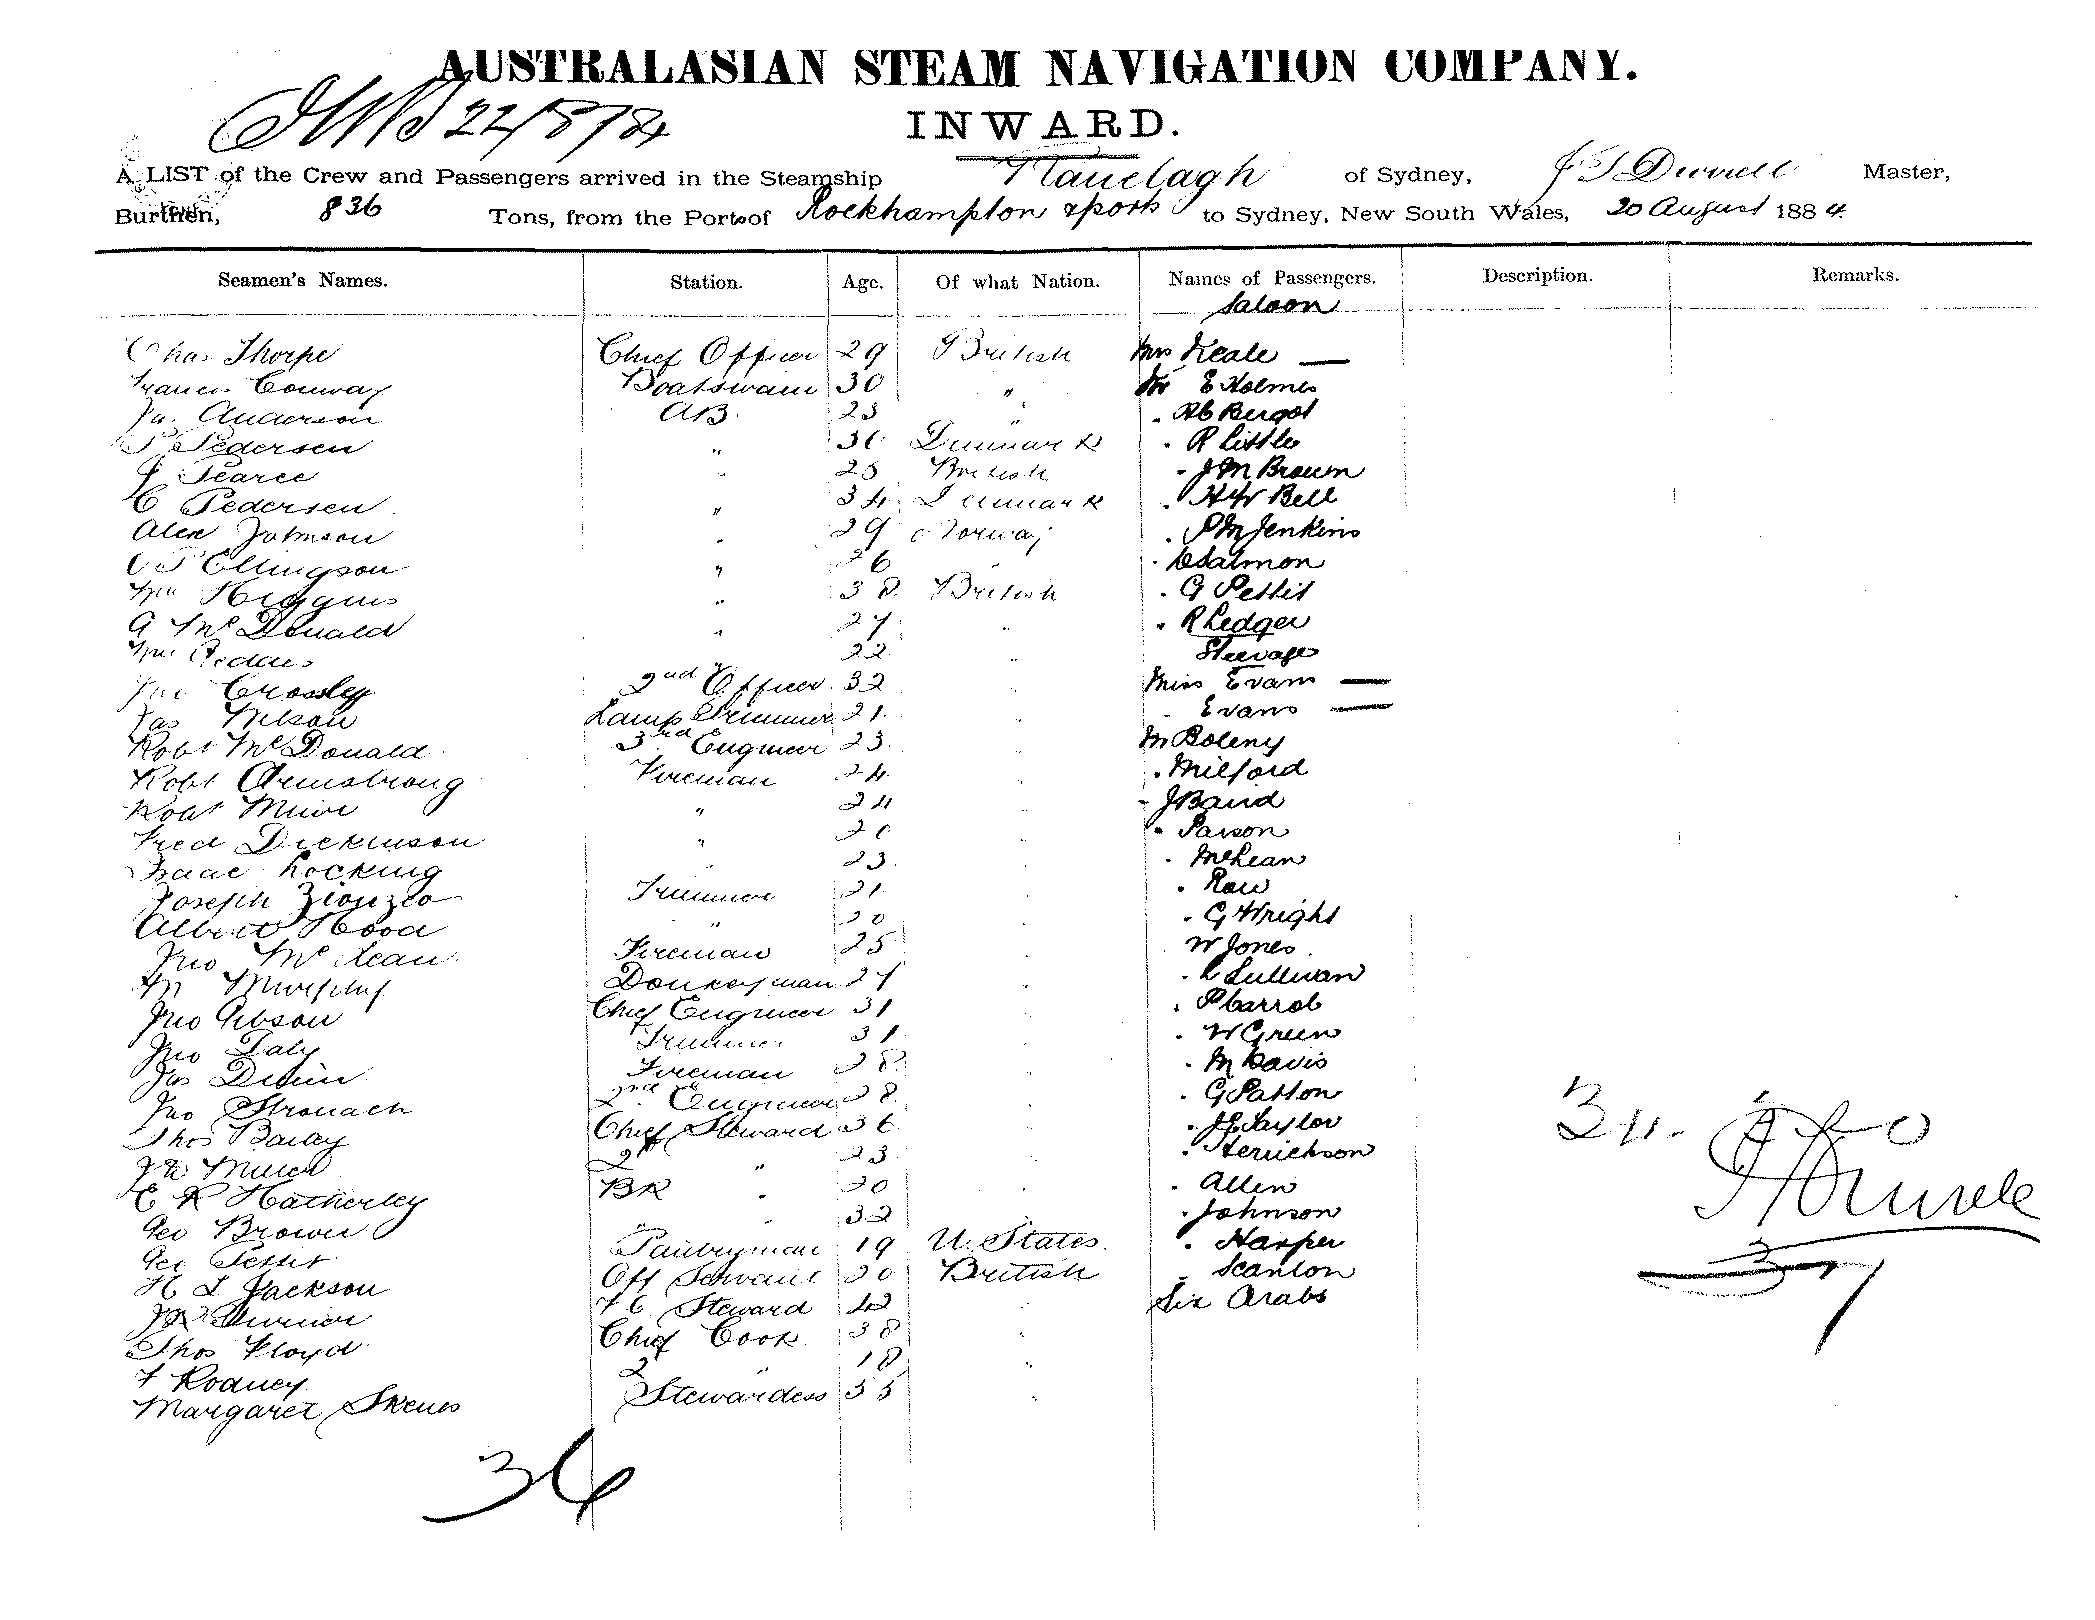 AUSTRALASIAN STEAM NAVIGATION COMPANY.
22/8/84
INWARD.
A LIST of the Crew and Passengers arrived in the Steamship Ranelagh of Sydney, Master,
Burthen, 836 Tons, from the Ports of Rockhampton & ports to Sydney, New South Wales, 20 August 1884
Seamen's Names. Station. Age. Of what Nation. Names of Passengers. Description. Remarks.
Saloon
Chas Thorpe Chief Officer 29 British Mrs Keale —
Francis Conway Boatswain 30 " Mr E Holmes
Anderson AB. 23 " .
Pedersen " Denmark . R Little
J Pearce " British " J M Brown
C Pedersen " 34 Denmark . Bell
Alex Johnson " 29 Norway . Jenkins
Ellingson " 26 . Salmon
Wm Higgins " 38 British . G Pettit
A McDonald " 27 " " R Ledger
Wm 22 " Steerage
Jno Crossley 2nd Officer 32 " Miss Evans —
Jas Nelson Lamp Trimmer 21 " . Evans —
Robt McDonald 3rd Engineer 23 " Mr
Robt Armstrong Fireman 24 " . Milford
Robt Muir " 24 " " J Baird
Fred Dickinson " 20 " " Parson
Isaac Hocking " 23 " . McLean
Joseph Trimmer 21 " . Row
Albert Hood " 20 " . G Wright
Jno McLean Fireman 25 " W Jones
Murphy Donkeyman 27 " . Sullivan
Jno Gibson Chief Engineer 31 " . P Carrol
Jno Daly Trimmer 31 " . W Green
Jas Fireman 28 " . M Davis
Jno Stronach 2nd Engineer 28 " . G Patton
Thos Chief Steward 36 " . Taylor
2nd " 23 "
E R Hatherley BK " 20 " . Allen
Geo Brown " 32 " . Johnson
Geo Pettit Pantryman 19 U. States . Harper
H L Jackson Off Servant 20 British . Scanlon
F C Steward 42 " Six Arabs
Thos Floyd Chief Cook 38 "
F Rodney 2 " 18 "
Margaret Stewardess 35 "
36
37